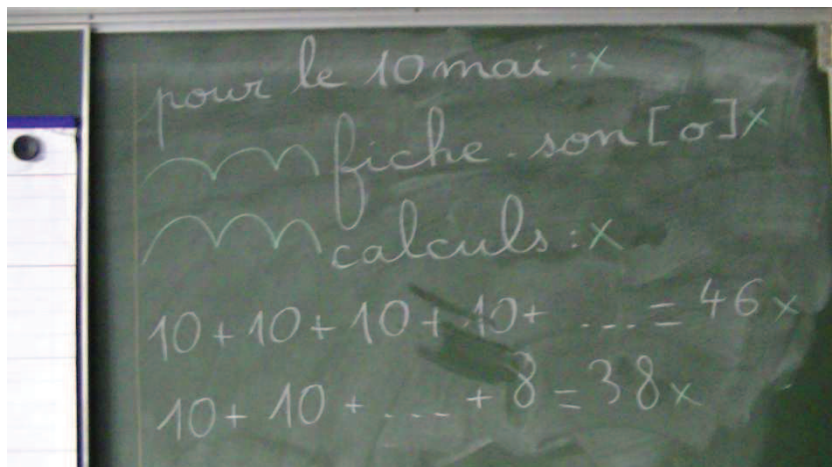 pour le 10 mai : x
fiche . son [o] x
calculs : x
10 + 10 + 10 + 10 + .... = 46 x
10 + 10 + .... + 8 = 38 x